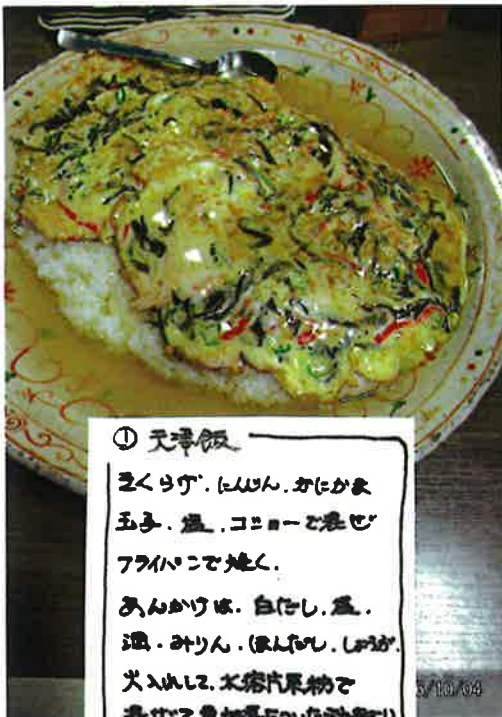 ① 天津飯
きくらげ．にんじん．かにかま
玉子．塩．コショーで混ぜ
フライパンで焼く．
あんかけは．白だし．塩．
酒．みりん．ほんだし．しょうが．
火入れして．水溶片栗粉で
/10/04